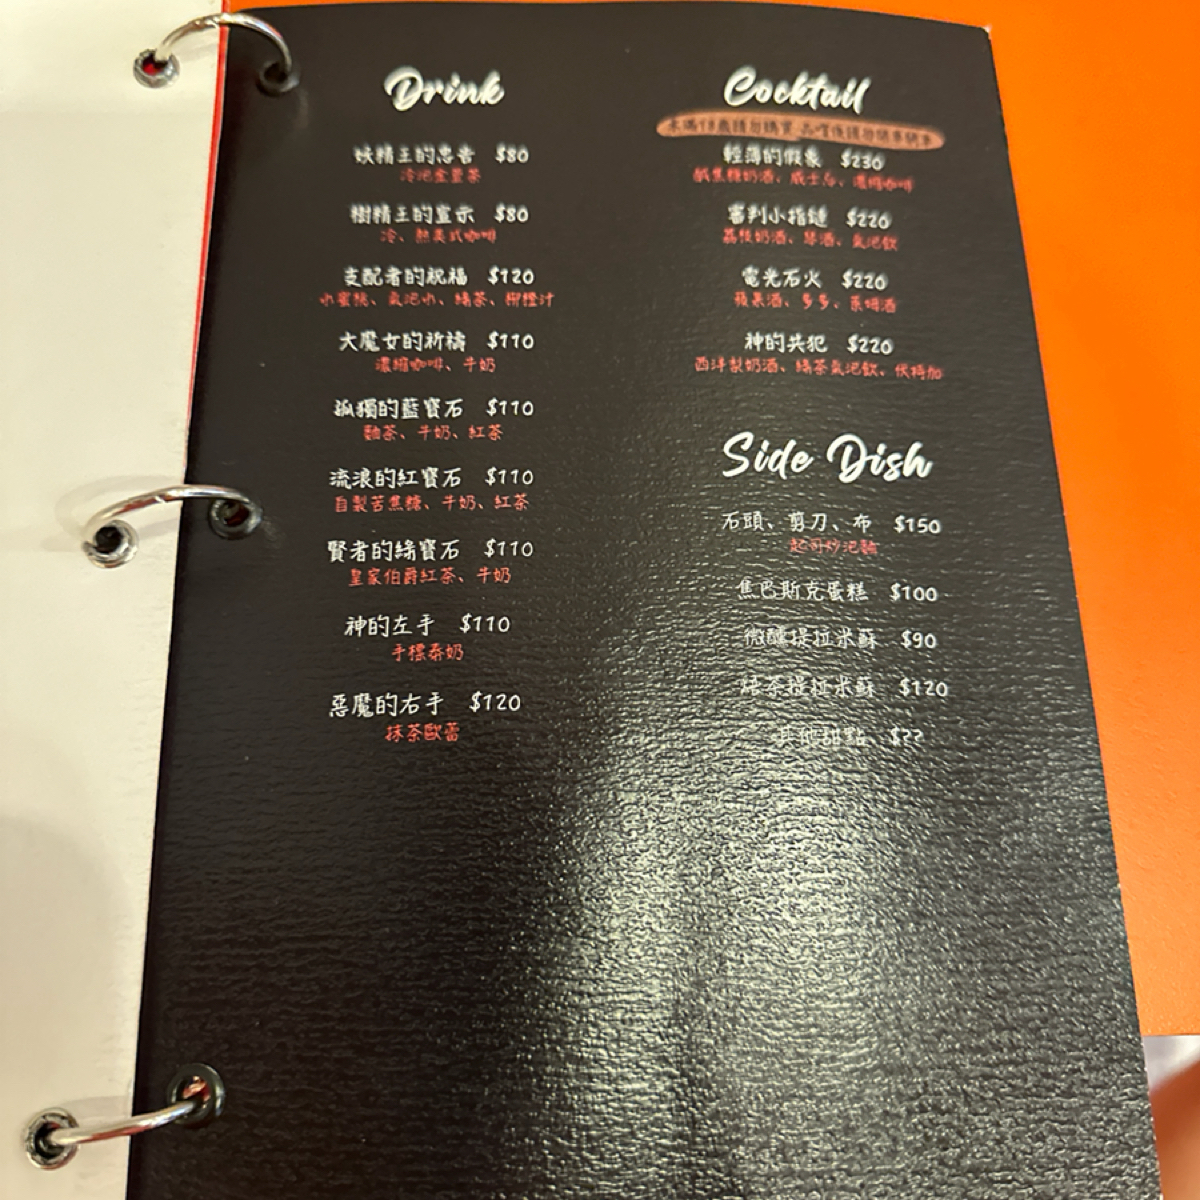 Drink
妖精王的忠告 $80
冷泡金萱茶
樹精王的宣示 $80
冷、熱美式咖啡
支配者的祝福 $120
水蜜桃、氣泡水、綠茶、柳橙汁
大魔女的祈禱 $110
濃縮咖啡、牛奶
孤獨的藍寶石 $110
麵茶、牛奶、紅茶
流浪的紅寶石 $110
自製苦焦糖、牛奶、紅茶
賢者的綠寶石 $110
皇家伯爵紅茶、牛奶
神的左手 $110
手標泰奶
惡魔的右手 $120
抹茶歐蕾
Cocktail
未滿18歲請勿購買
輕薄的假象 $230
鹹焦糖奶酒、威士忌、濃縮咖啡
審判小指鏈 $220
荔枝奶酒、琴酒、氣泡飲
電光石火 $220
蘋果酒、多多、萊姆酒
神的共犯 $220
西洋梨奶酒、綠茶氣泡飲、伏特加
Side Dish
石頭、剪刀、布 $150
起司炒泡麵
焦巴斯克蛋糕 $100
微醺提拉米蘇 $90
焙茶提拉米蘇 $120
其他甜點 $??